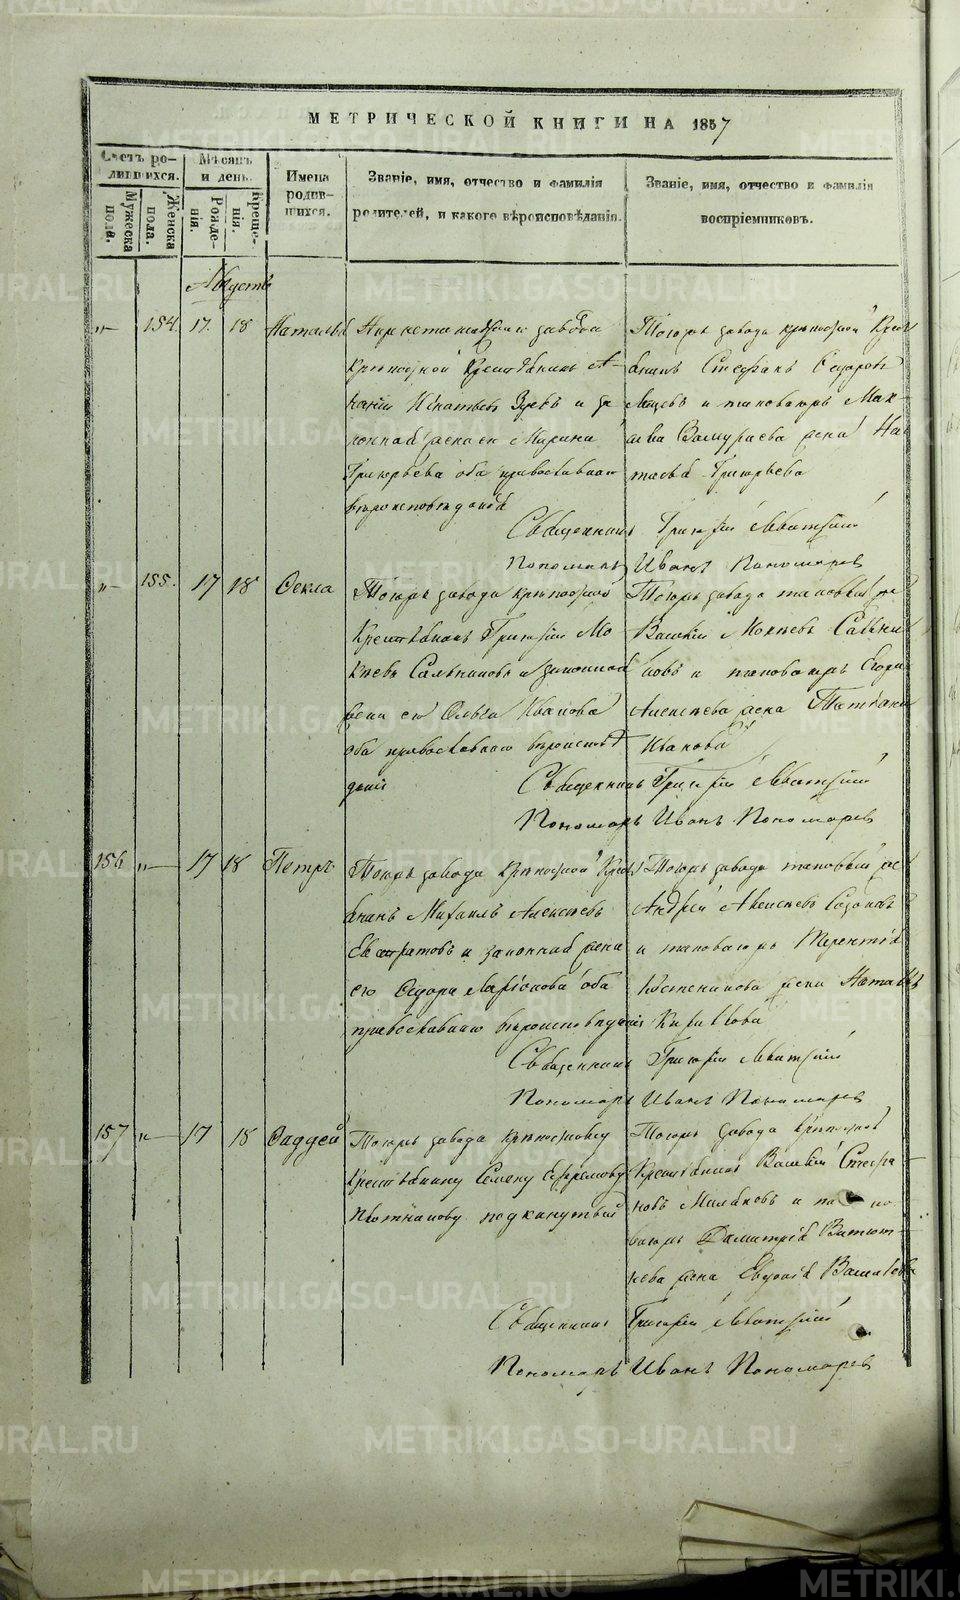 МЕТРИЧЕСКОЙ КНИГИ НА 1857
Счетъ ро-
дившихся.
Мужеска
пола.
Женска
пола.
Мѣсяцъ
и день.
Рожде-
нія.
Креще-
нія.
Имена
родив-
шихся.
Званіе, имя, отчество и фамилія
родителей, и какого вѣроисповѣданія.
Званіе, имя, отчество и фамилія
воспріемниковъ.
Августъ
154. 17. 18 Наталья
завода
крѣпостной крестьянинъ
и за
конная жена его Марина
Григорьева оба православнаго
вѣроисповѣданія
Тогожъ завода крѣпостной Крест
янинъ Стефанъ Федоровъ
и таковагожъ Мак-
жена На
талья Григорьева
Священникъ Григорій
Пономарь Иванъ Пономаревъ
155. 17 18 Фекла
Тогожъ завода крѣпостной
Крестьянинъ Григорій Мо
кѣевъ и законная
жена его Ольга Иванова
оба православнаго вѣроисповѣ
данія
Тогожъ завода таковый же
Василій Мокѣевъ
ковъ и таковагожъ Егора
Алексѣева жена Татьяна
Иванова
Священникъ Григорій
Пономарь Иванъ Пономаревъ
156 17 18 Петръ
Тогожъ завода крѣпостной Крест
янинъ Михаилъ Алексѣевъ
Евстратовъ и законная жена
его Федора Ларіонова оба
православнаго вѣроисповѣданія
Тогожъ завода таковый же
Андрей Алексѣевъ
и таковагожъ Терентія
Костеникова жена Наталья
Священникъ Григорій
Пономарь Иванъ Пономаревъ
157 17 18 Фаддей
Тогожъ завода крѣпостному
Крестьянину Семену Ефремову
Плотникову подкинутый
Тогожъ завода Крѣпостной
Крестьянинъ Василій Стефа
новъ Милаковъ и тако
вагожъ Дмитрія
жена Евдокія Васильева
Священникъ Григорій
Пономарь Иванъ Пономаревъ
METRIKI.GASO-URAL.RU